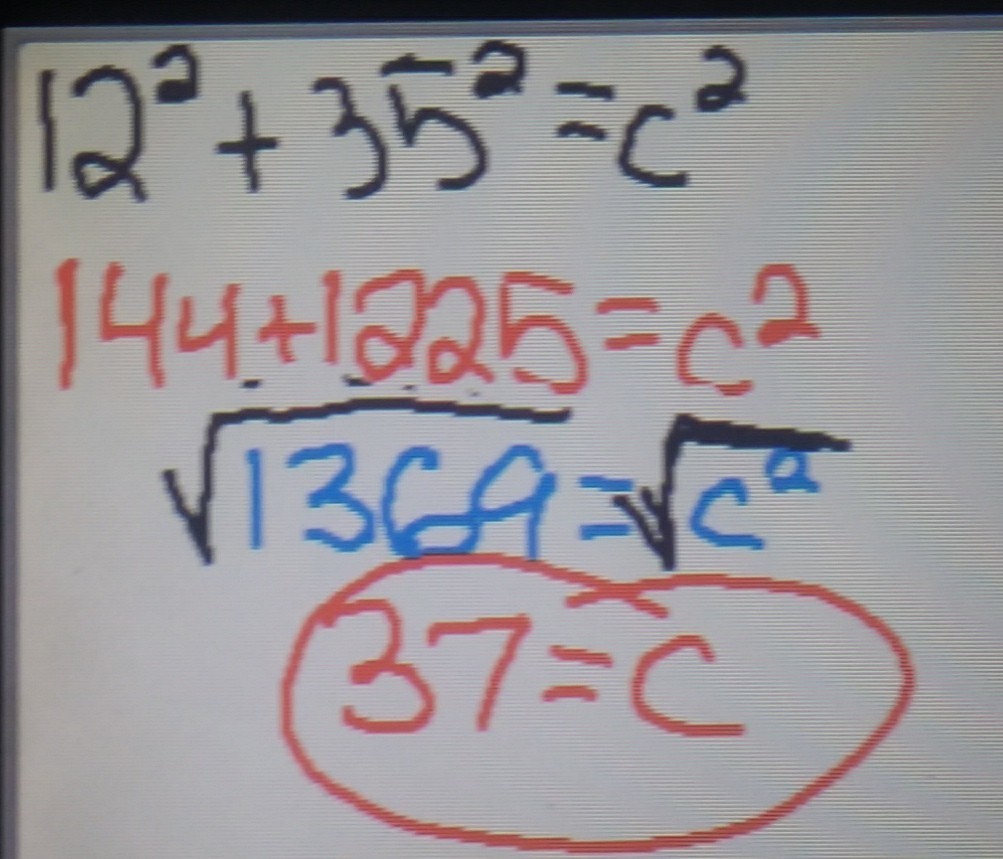 12² + 35² = c²
144 + 1225 = c²
√1369 = √c²
37 = c